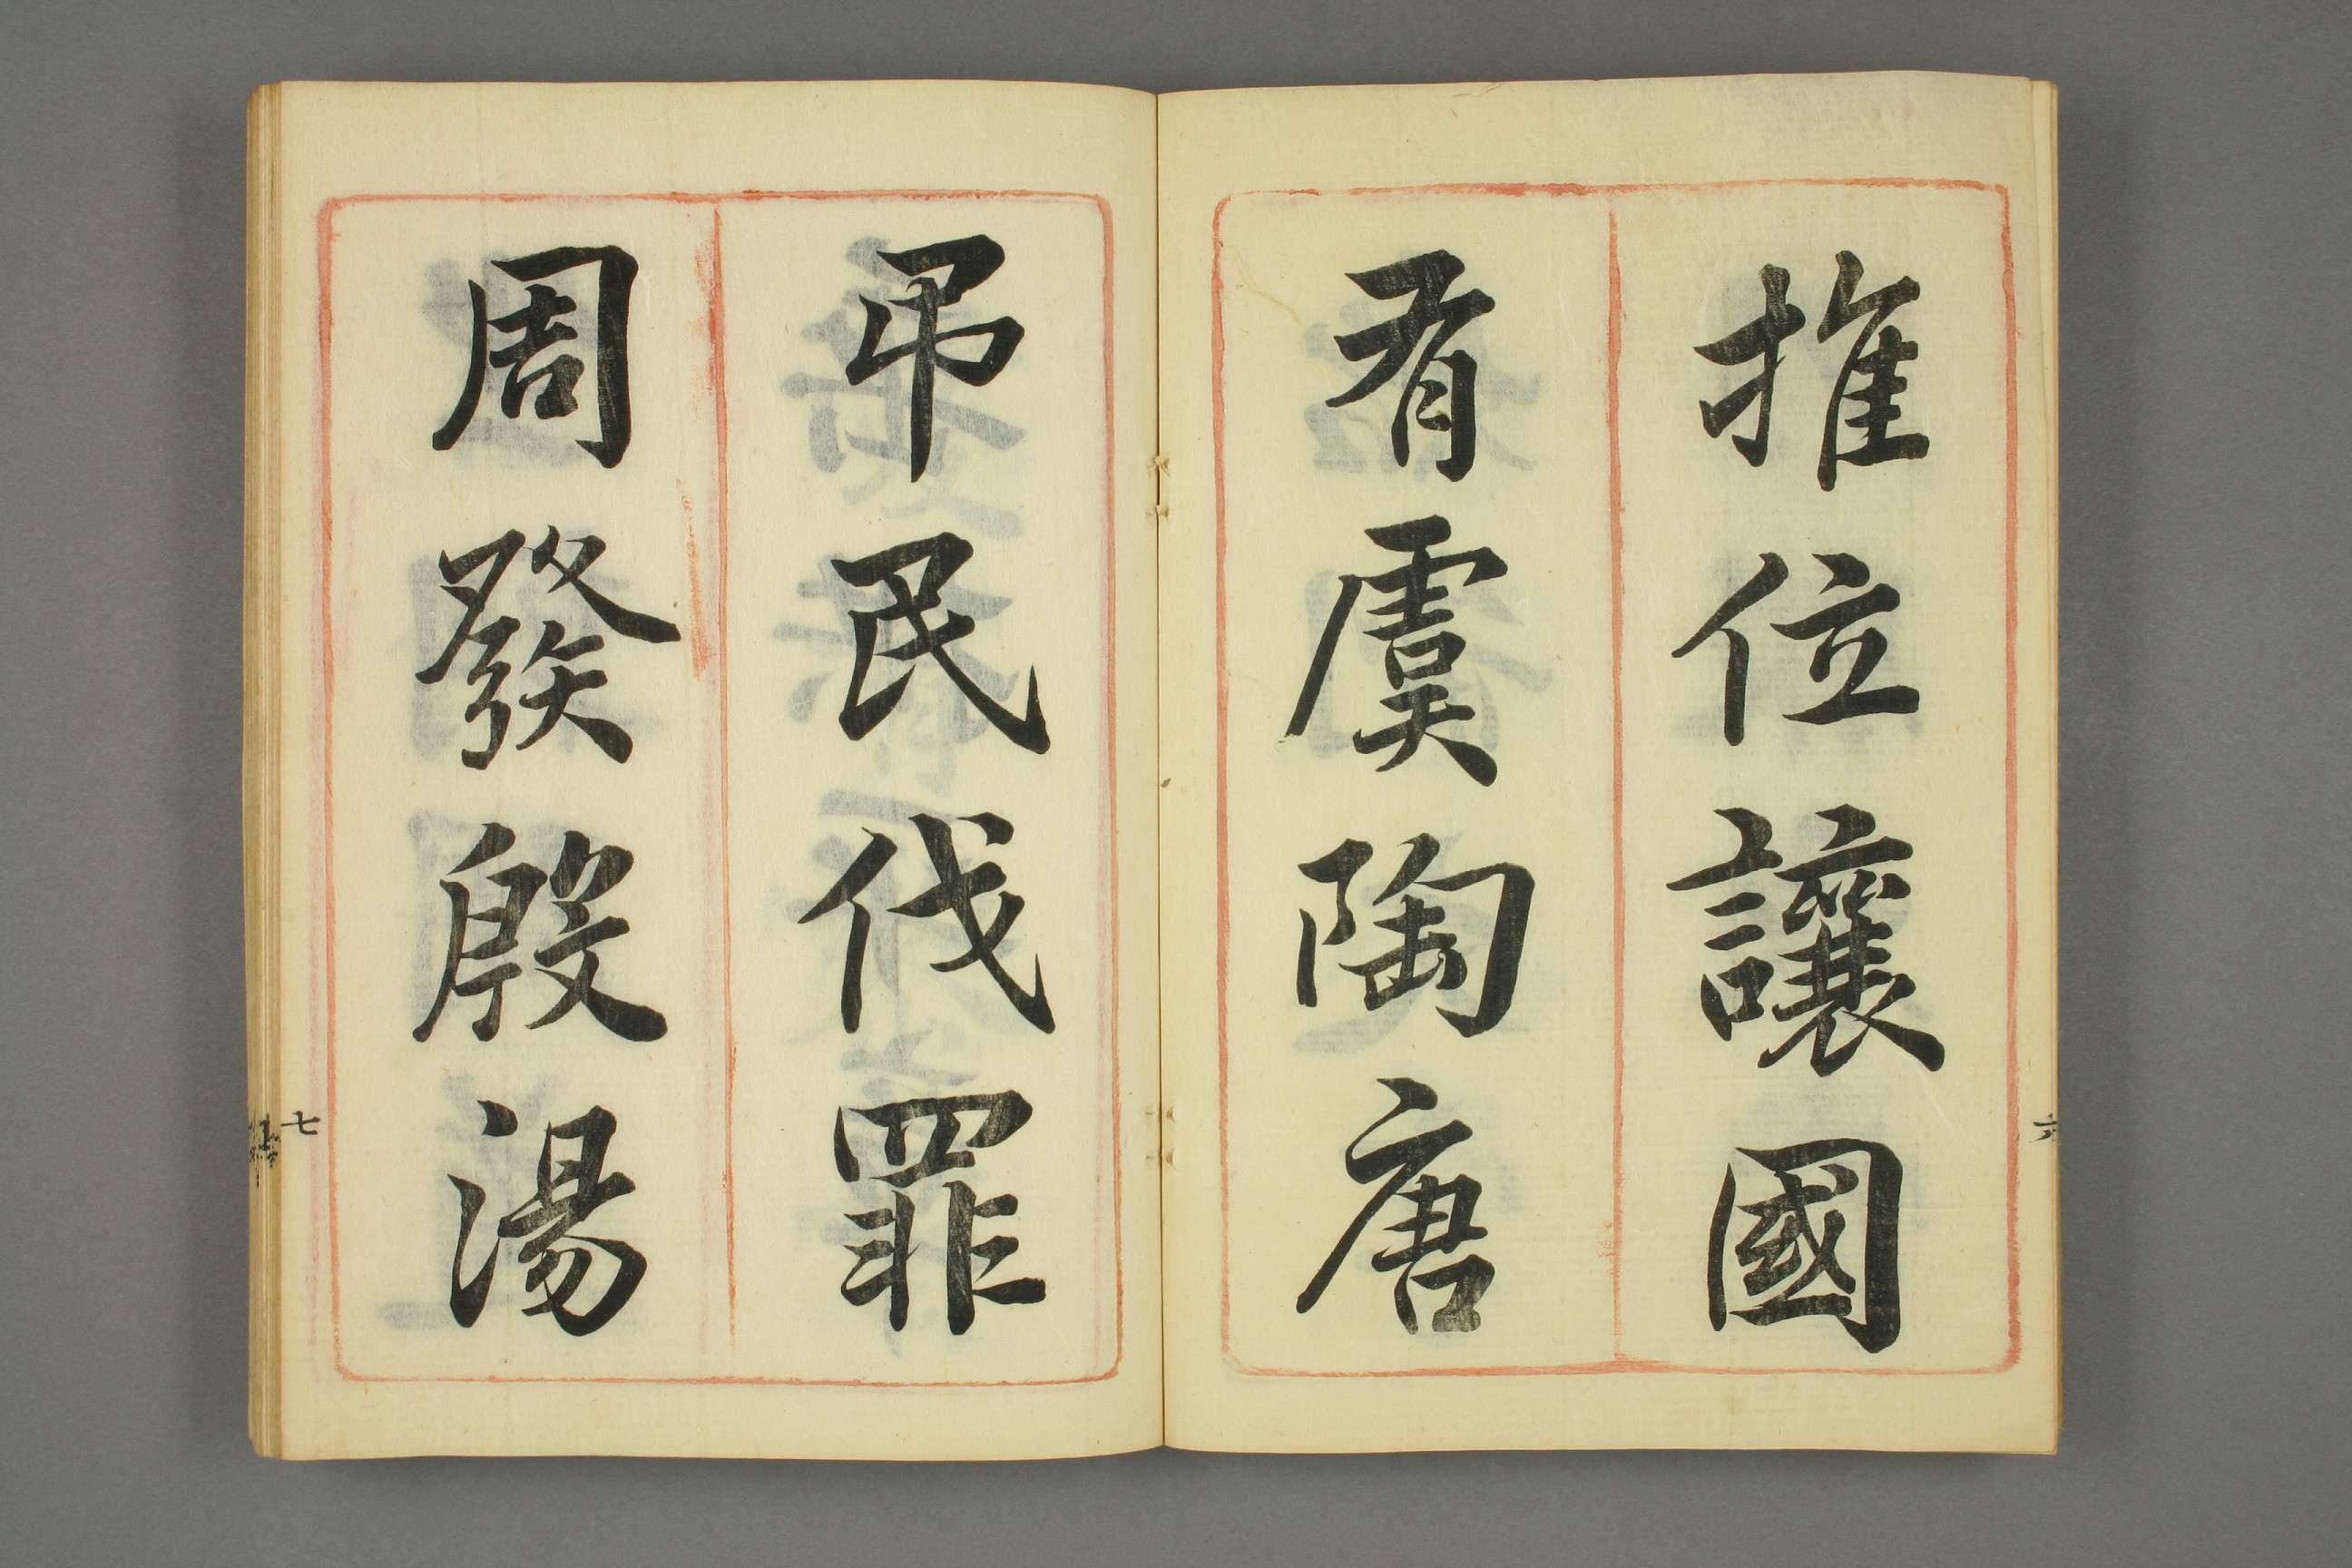 推位讓國
有虞陶唐
弔民伐罪
周發殷湯
六
七